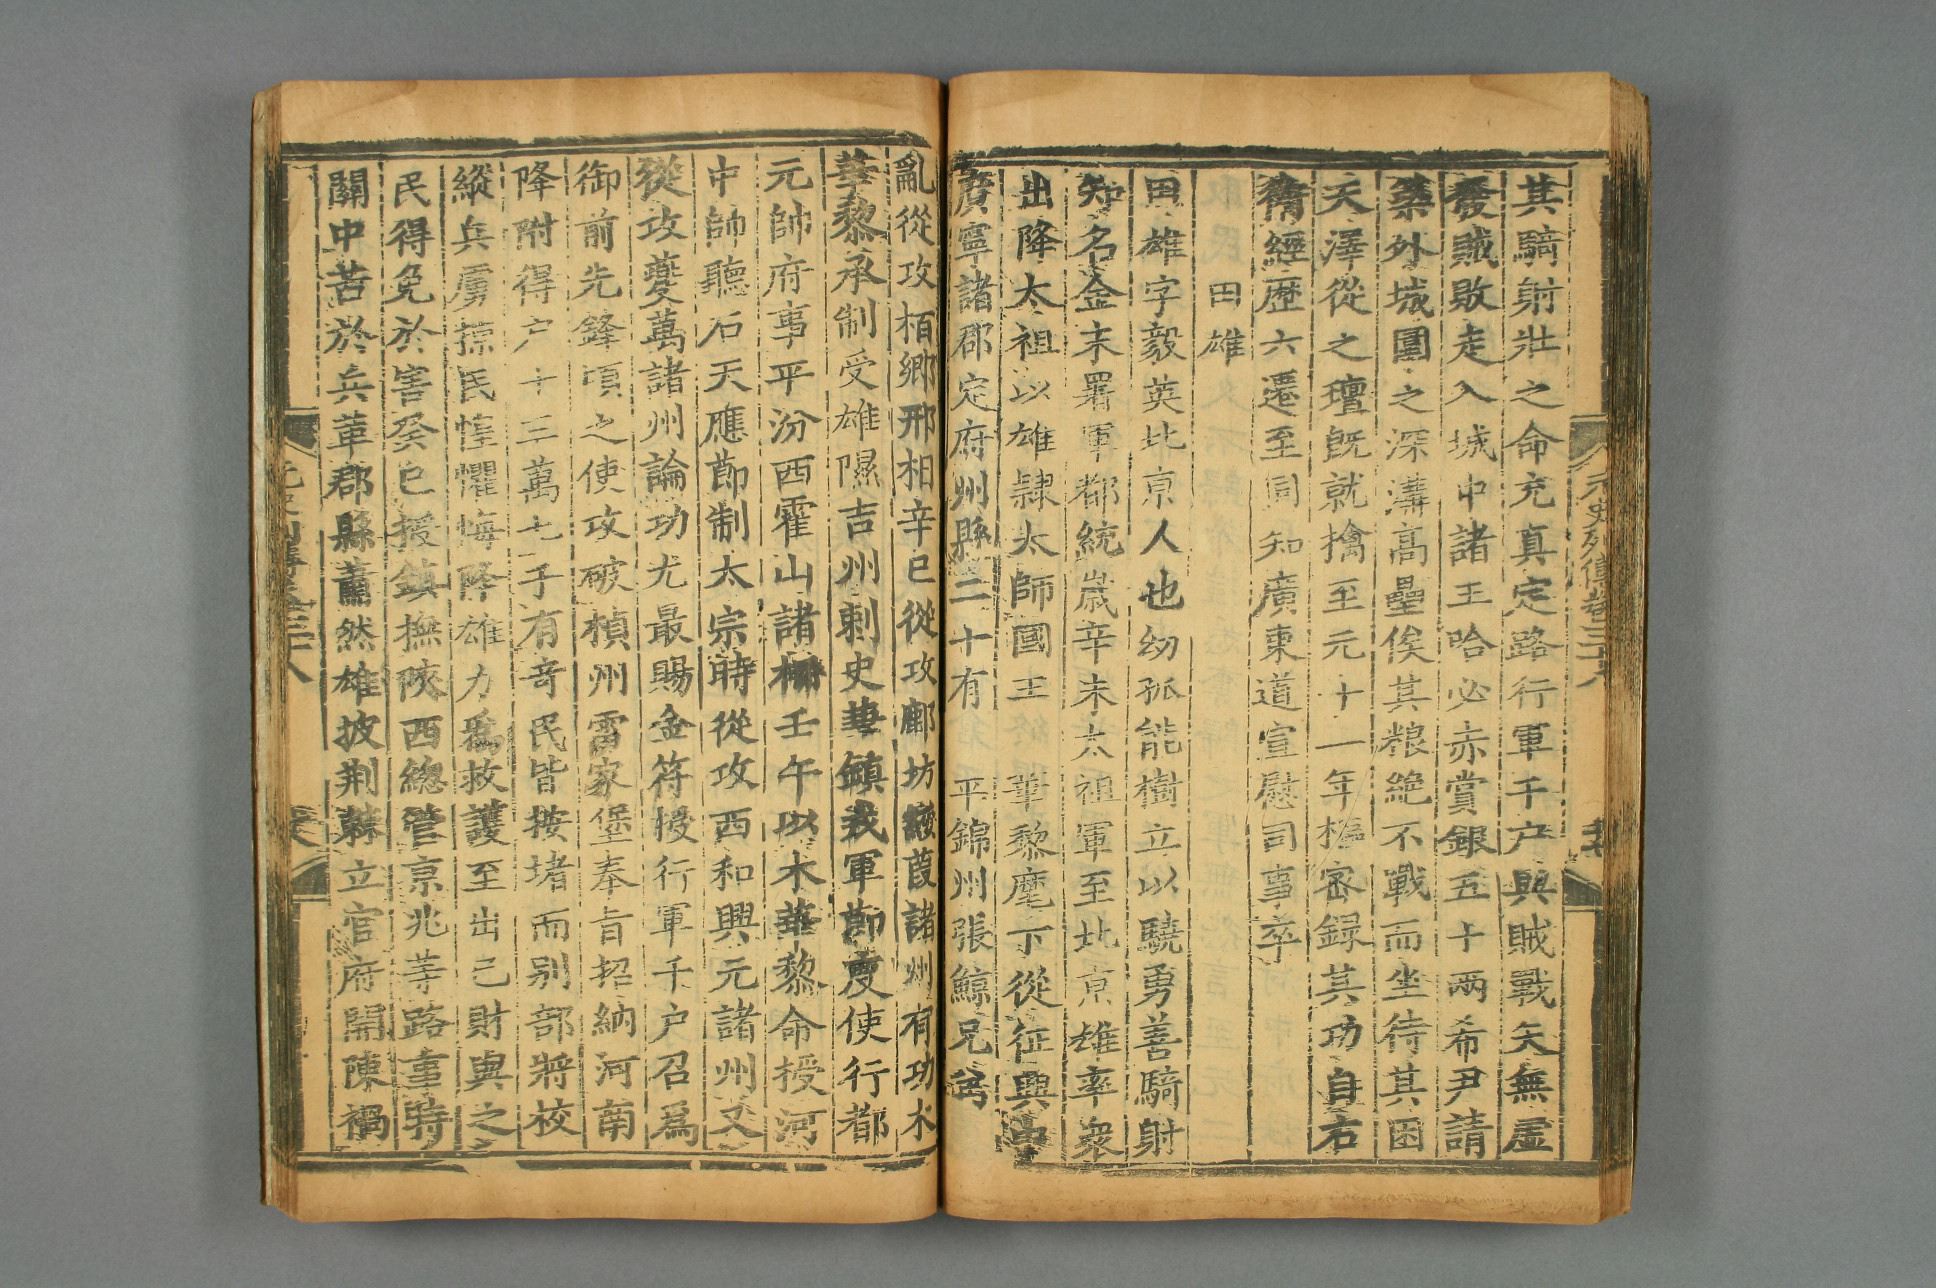 其騎射壯之命充真定路行軍千户與賊戰矢無虛
發賊敗走入城中諸王哈必赤賞銀五十兩希尹請
築外城圍之深溝高壘俟其粮絶不戰而坐待其困
天澤從之璮既就擒至元十一年樞密録其功自右
衛經歷六遷至同知廣東道宣慰司事卒
田雄
田雄字毅英北京人也幼孤能樹立以驍勇善騎射
知名金末署軍都統歲辛未太祖軍至北京雄率衆
出降太祖以雄隸太師國王 華黎麾下從征興中
廣寧諸郡定府州縣二十有 平錦州張鯨兄
亂從攻栢鄉邢相辛巳從攻鄜坊綏葭諸州有功木
華黎承制受雄隰吉州刺史兼鎮戎軍節度使行都
元帥府事平汾西霍山諸柵壬午以木華黎命授河
中帥聽石天應節制太宗時從攻西和興元諸州又
從攻夔萬諸州論功尤最賜金符授行軍千户召爲
御前先鋒項之使攻破楨州雷家堡奉旨招納河南
降附得户十三萬七千有竒民皆按堵而别部將校
縱兵虜掠民惶懼悔降雄力爲救護至出己財與之
民得免於害癸巳授鎮撫陜西總管京兆等路事時
關中苦於兵革郡縣蕭然雄披荆棘立官府開陳禍
元史列傳卷三十八
元史列傳卷三十八